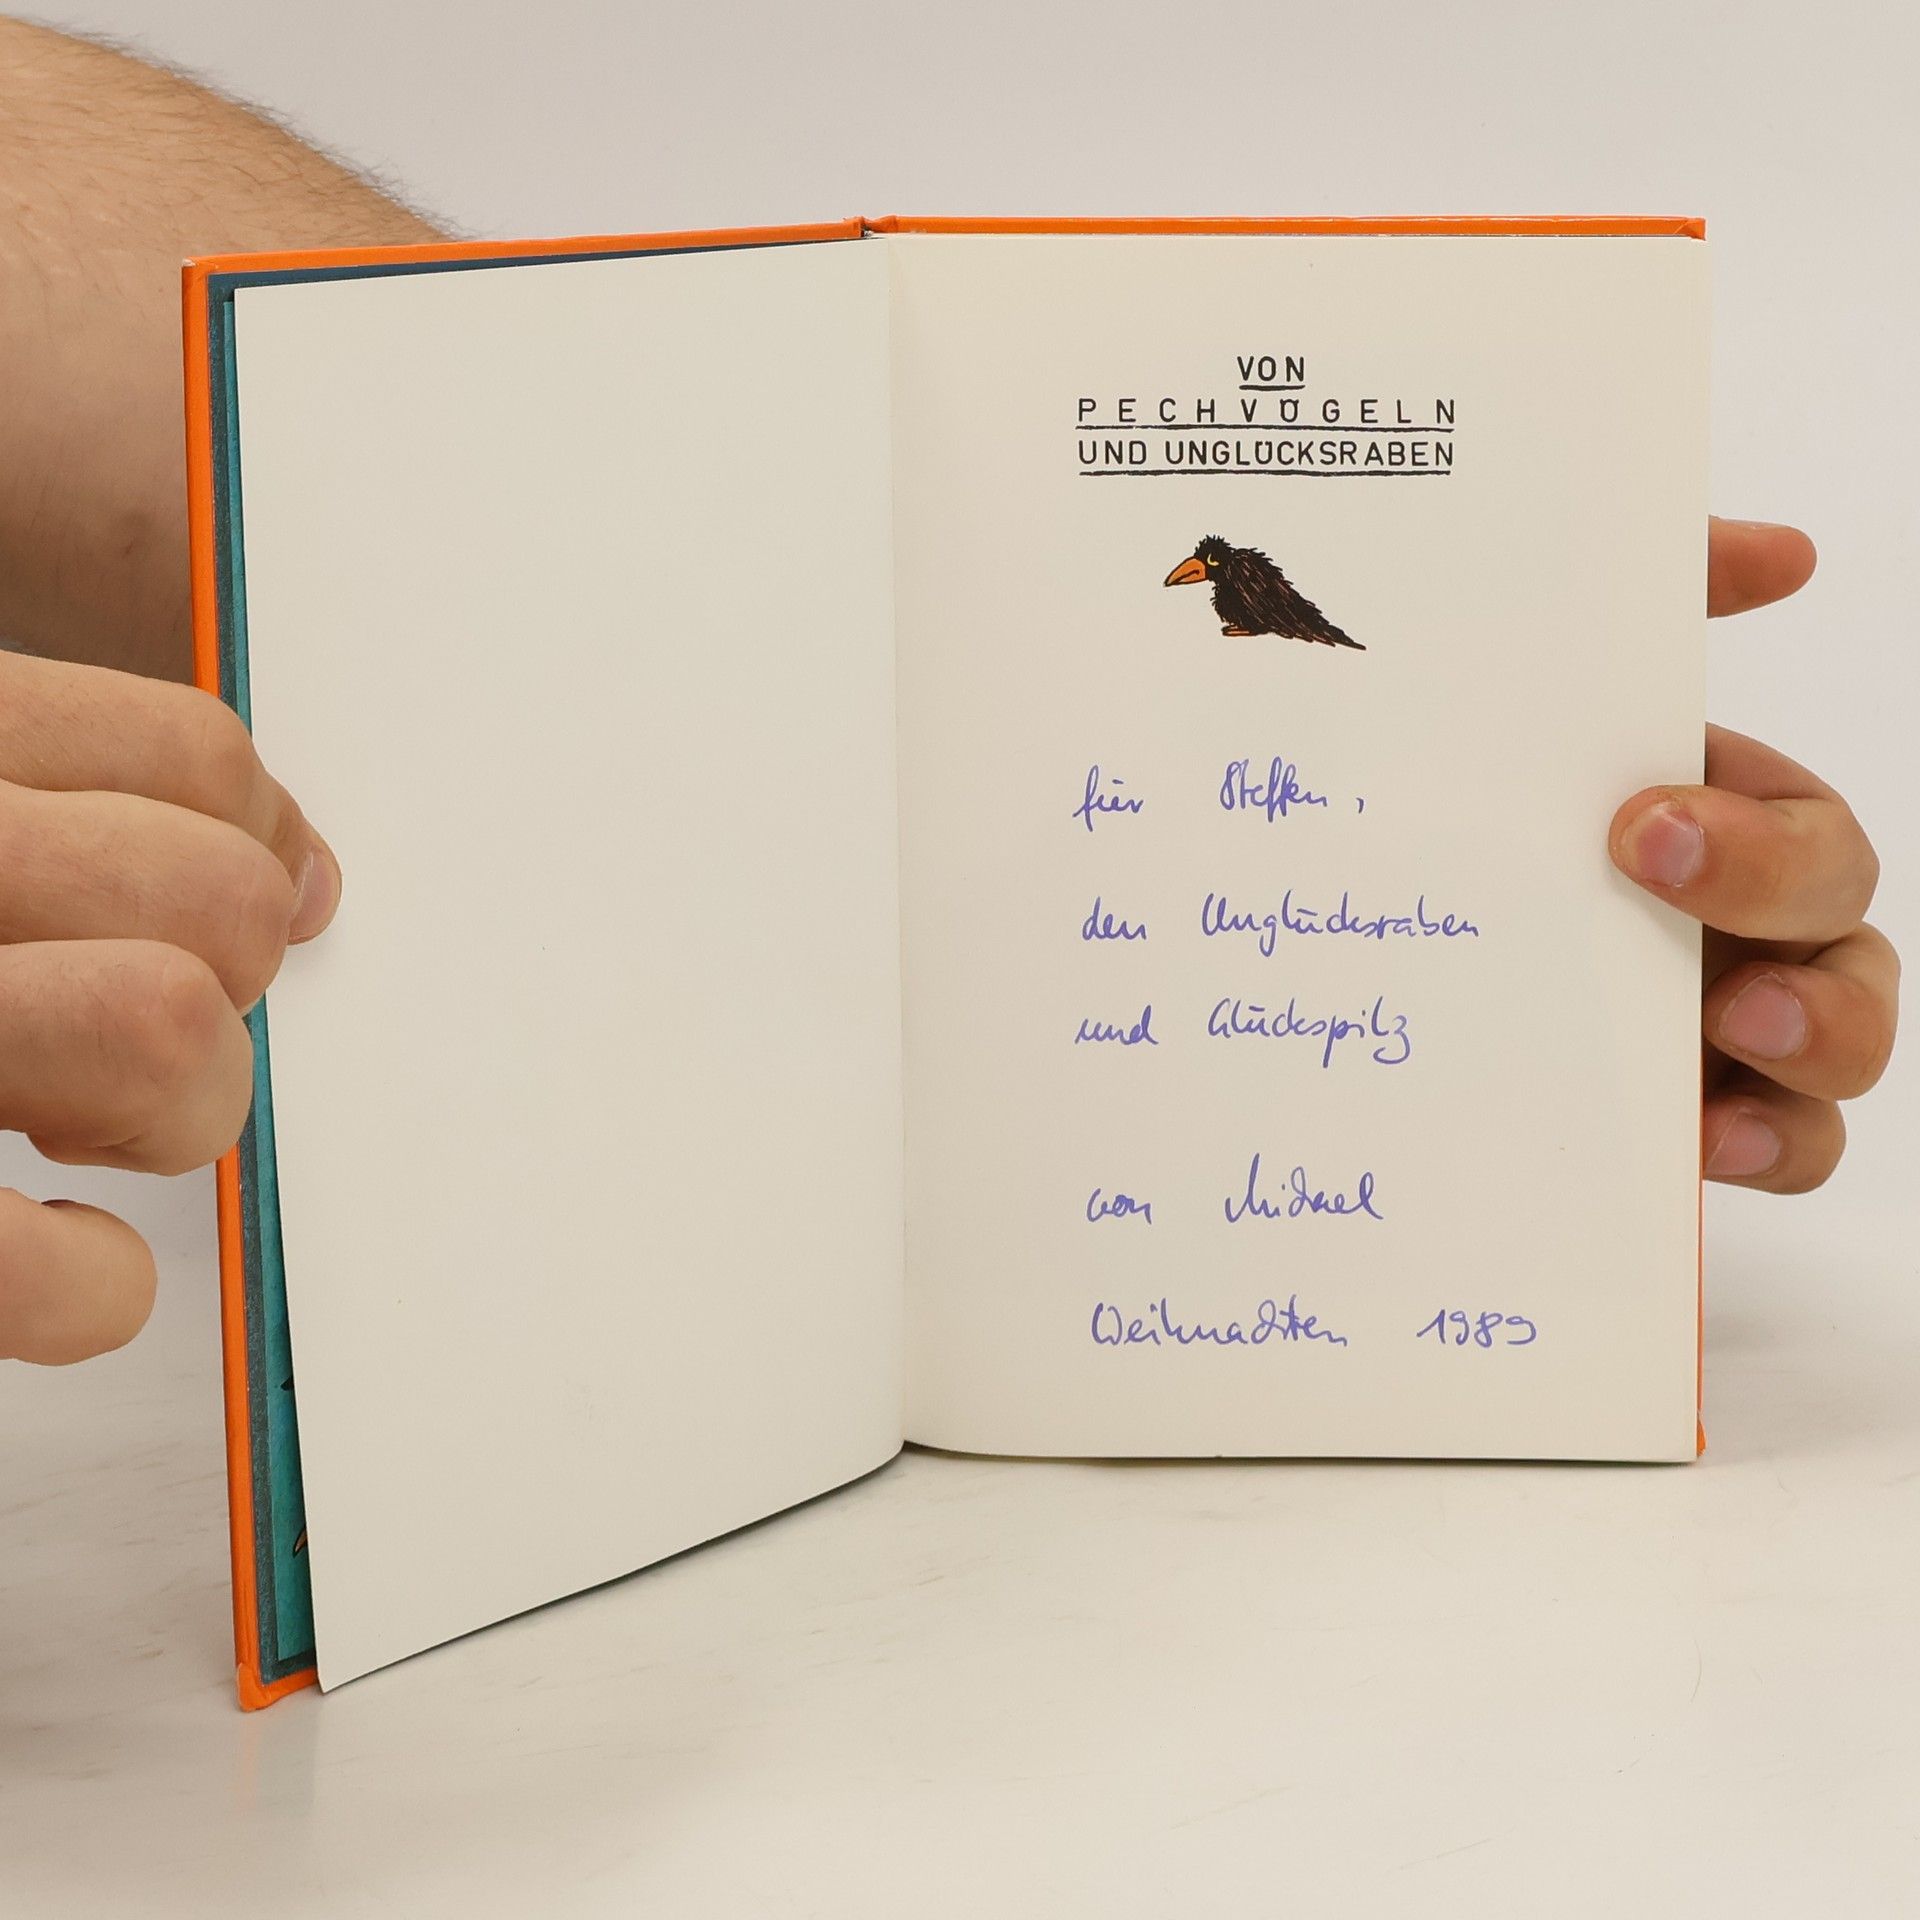 VON
PECHVÖGELN
UND UNGLÜCKSRABEN
für Steffen,
den Unglücksraben
und Glückspilz
von Michael
Weihnachten 1989